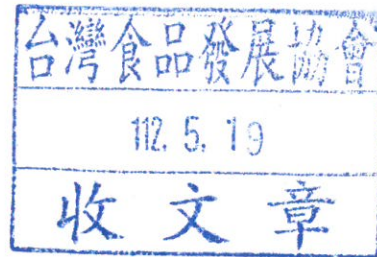 台灣食品發展協會
112. 5. 19
收文章